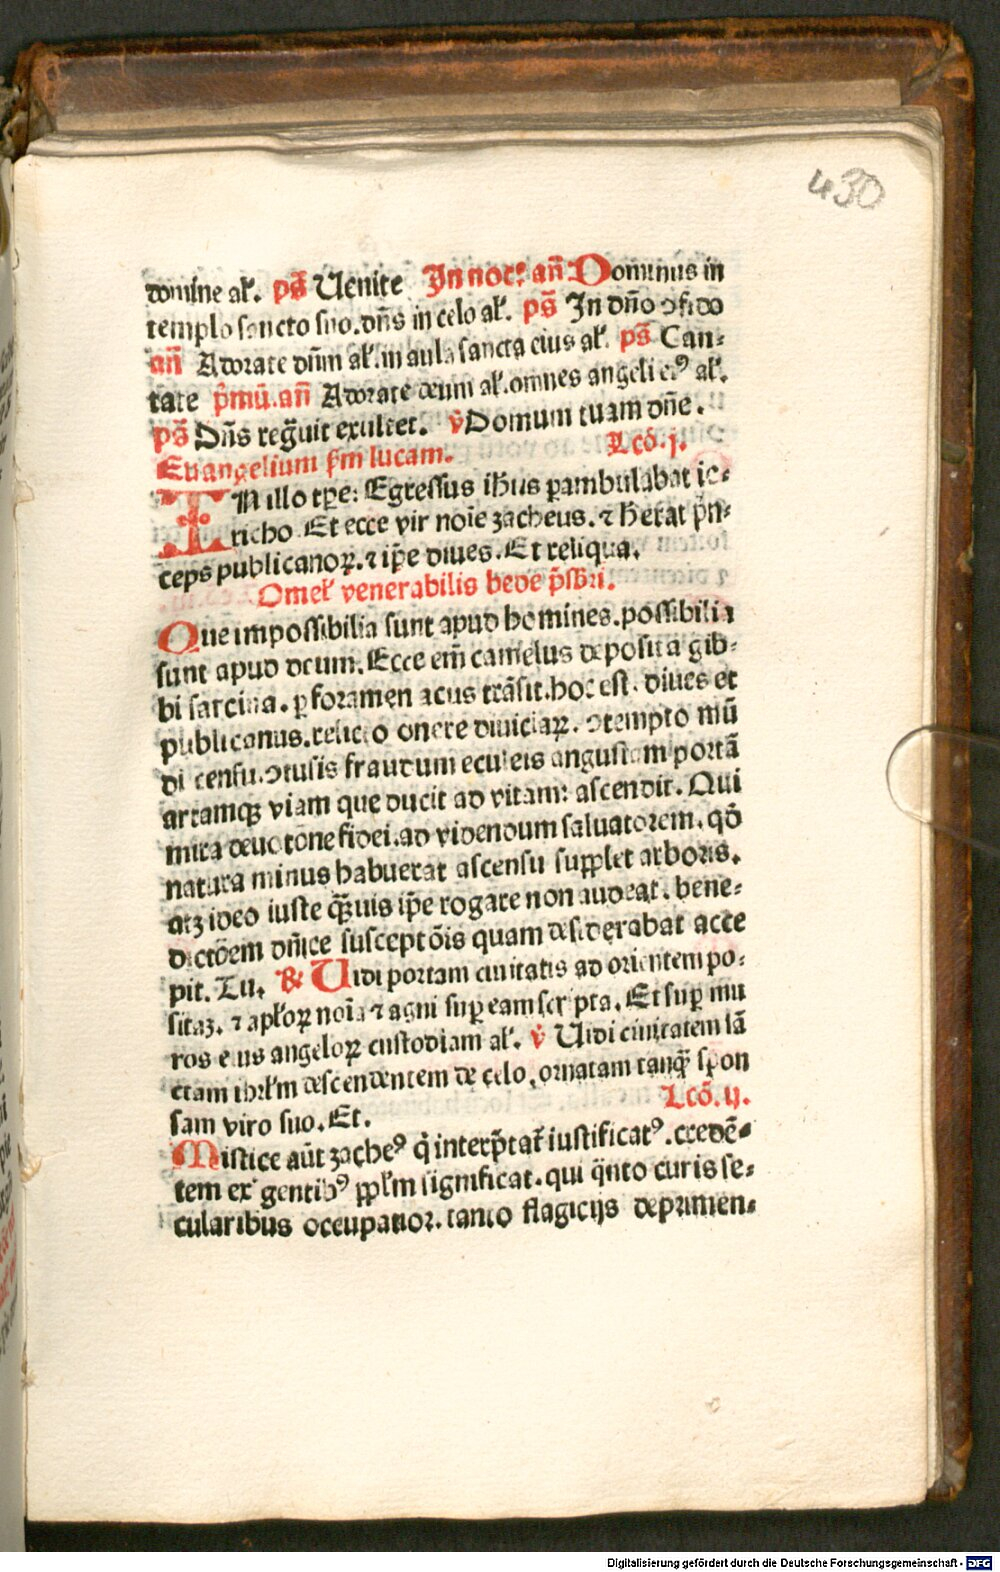 430
domine al'. ps̄ Uenite In noct᷒. añ Dominus in
templo sancto suo. dn̄s in celo al'. ps̄ In dn̄o ↄfido
añ Adorate dn̄m al'. in aula sancta eius al'. ps̄ Can-
tate p̄mū. añ Adorate deum al'. omnes angeli eiꝰ al'.
ps̄ Dn̄s regͣuit exultet. v̄ Domum tuam dn̄e.
Euangelium ẜm lucam. Lcō. j.
IN illo tꝑe: Egressus ih̄us ꝑambulabat ie-
richo. Et ecce vir noīe zacheus. ⁊ h̄ erat pͥn-
ceps publicanoꝝ. ⁊ ip̄e diues. Et reliqua.
Omel' venerabilis bede p̄sb̄ri.
Que impossibilia sunt apud homines. possibilia
sunt apud deum. Ecce em̄ camelus deposita gib-
bi sarcina. ꝑ foramen acus trāsit. hoc est. diues et
publicanus. relicto onere diuiciaꝝ. ↄtempto mū
di censu. ↄtusis fraudum eculeis angustam portā
artamqꝫ viam que ducit ad vitam: ascendit. Qui
mira deuotone fidei. ad videndum saluatorem. qd̄
natura minus habuerat ascensu supplet arboris.
atꝫ ideo iuste qͣ̄uis ip̄e rogare non audeat. bene-
dictōem dn̄ice susceptōis quam desiderabat acce
pit. Tu. ℟ Uidi portam ciuitatis ad orientem po-
sitaꝫ. ⁊ apl'oꝝ noīa ⁊ agni suꝑ eam scripta. Et suꝑ mu
ros eius angeloꝝ custodiam al'. v̄ Uidi ciuitatem sā
ctam ihrl'm descendentem de celo, ornatam tanqͣ̄ spon
sam viro suo. Et. Lcō. ij.
Mistice aūt zacheꝰ q̇ interp̄tat᷒ iustificatꝰ. credē-
tem ex gentibꝰ ppl'm significat. qui qͣnto curis se-
cularibus occupatior. tanto flagicijs deprimen-
Digitalisierung gefördert durch die Deutsche Forschungsgemeinschaft - DFG